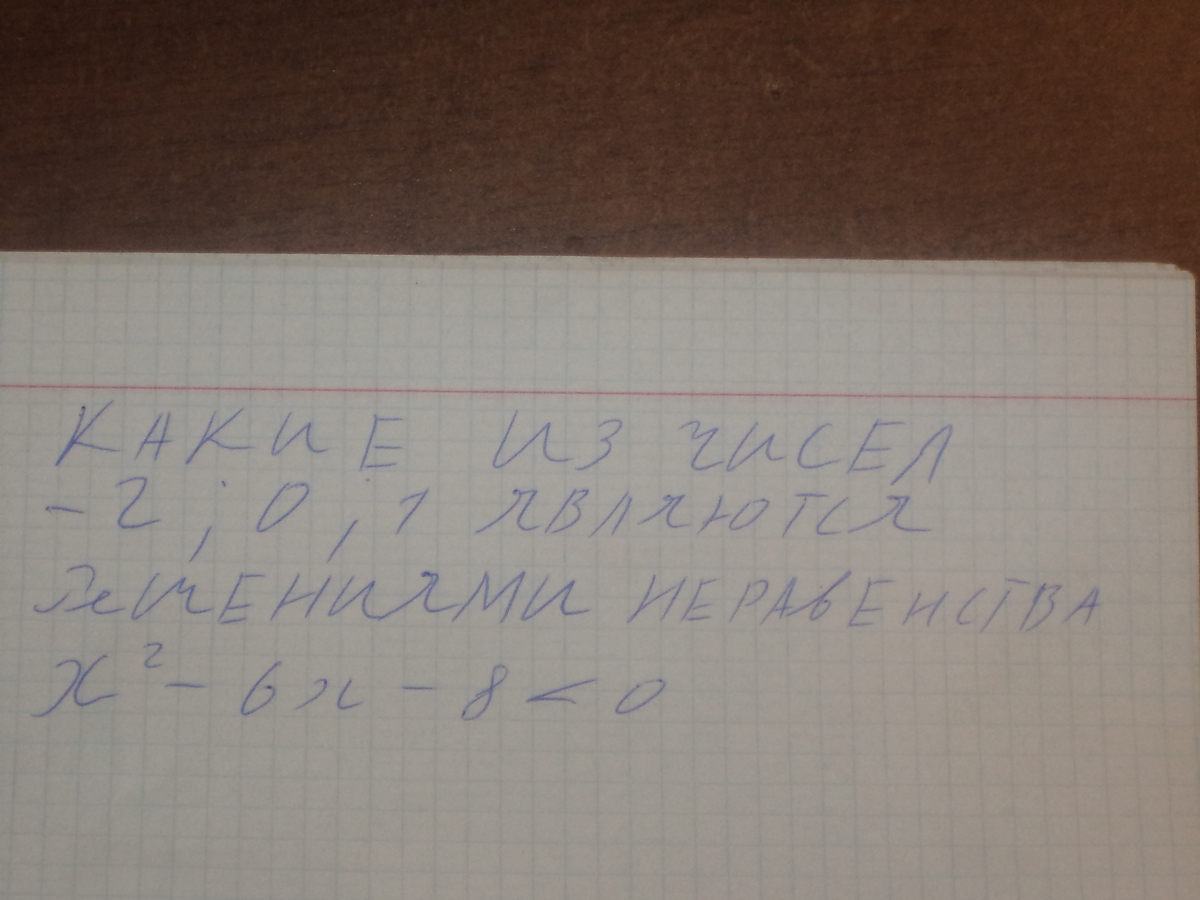 КАКИЕ ИЗ ЧИСЕЛ
-2; 0; 1 ЯВЛЯЮТСЯ
РЕШЕНИЯМИ НЕРАВЕНСТВА
x² - 6x - 8 < 0